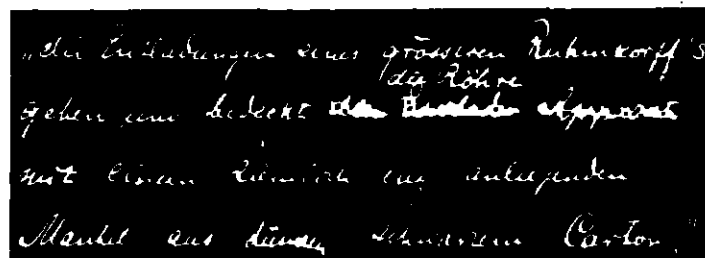 „die Entladungen eines grösseren Ruhmkorff's
die Röhre
gehen und bedeckt Apparat
mit einem ziemlich eng anliegenden
Mantel aus dünnem, schwarzem Carton."